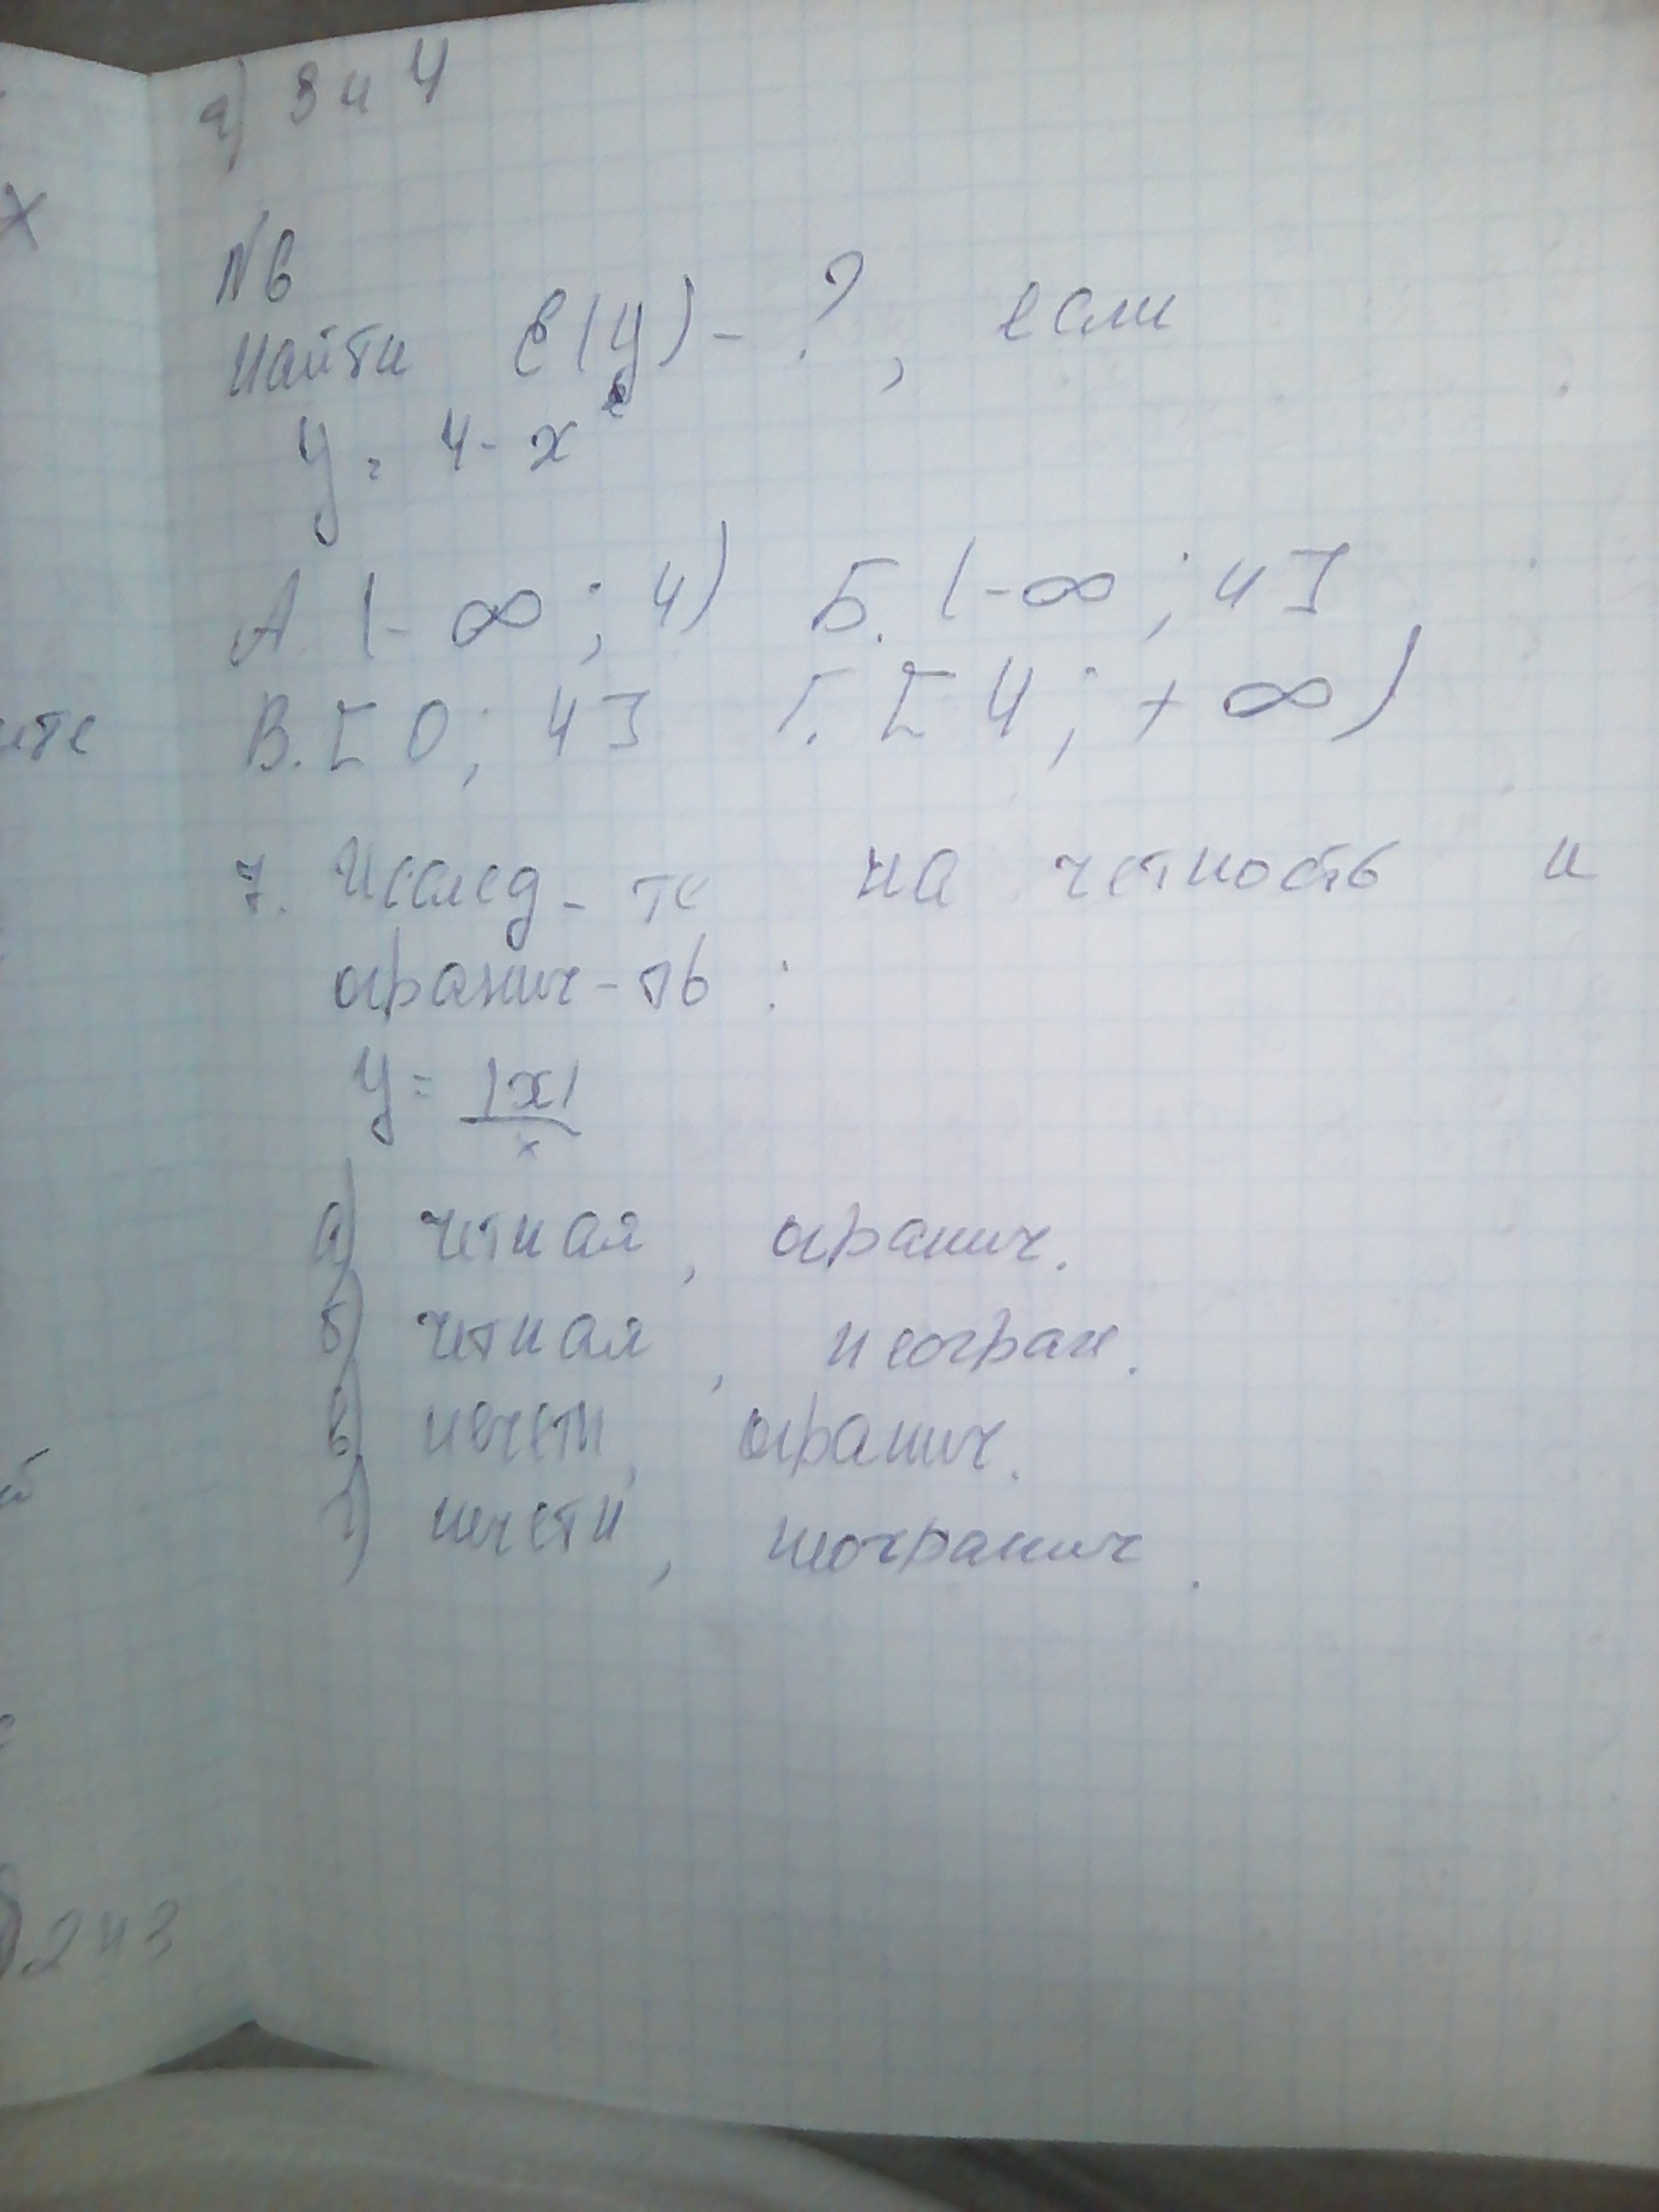 г) 3 и 4
х
N6
Найти E(y) - ?, если
y = 4 - x²
ите
А (-∞; 4) Б. (-∞; 4]
В. [0; 4] Г. [4; +∞)
7. Исслед-те на четность и
огранич-ть:
y = |x|
x
а) четная, огранич.
б) четная, неогран.
в) нечетн, огранич.
г) нечетн, неогранич.
й
243